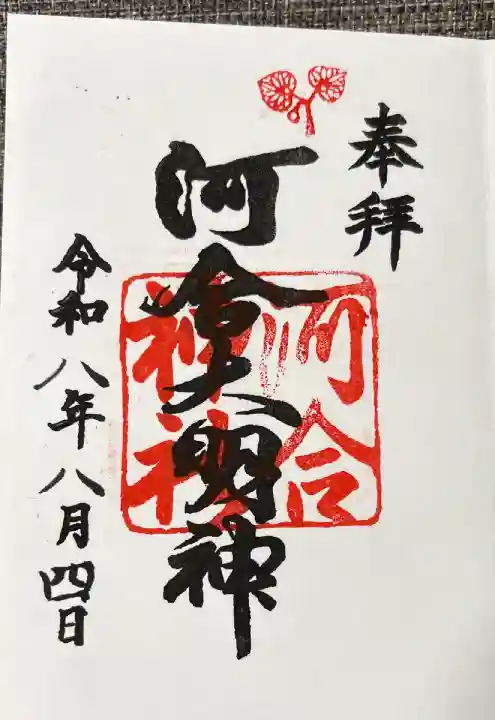 奉拝
河合大明神
河合
神社
令和八年八月四日